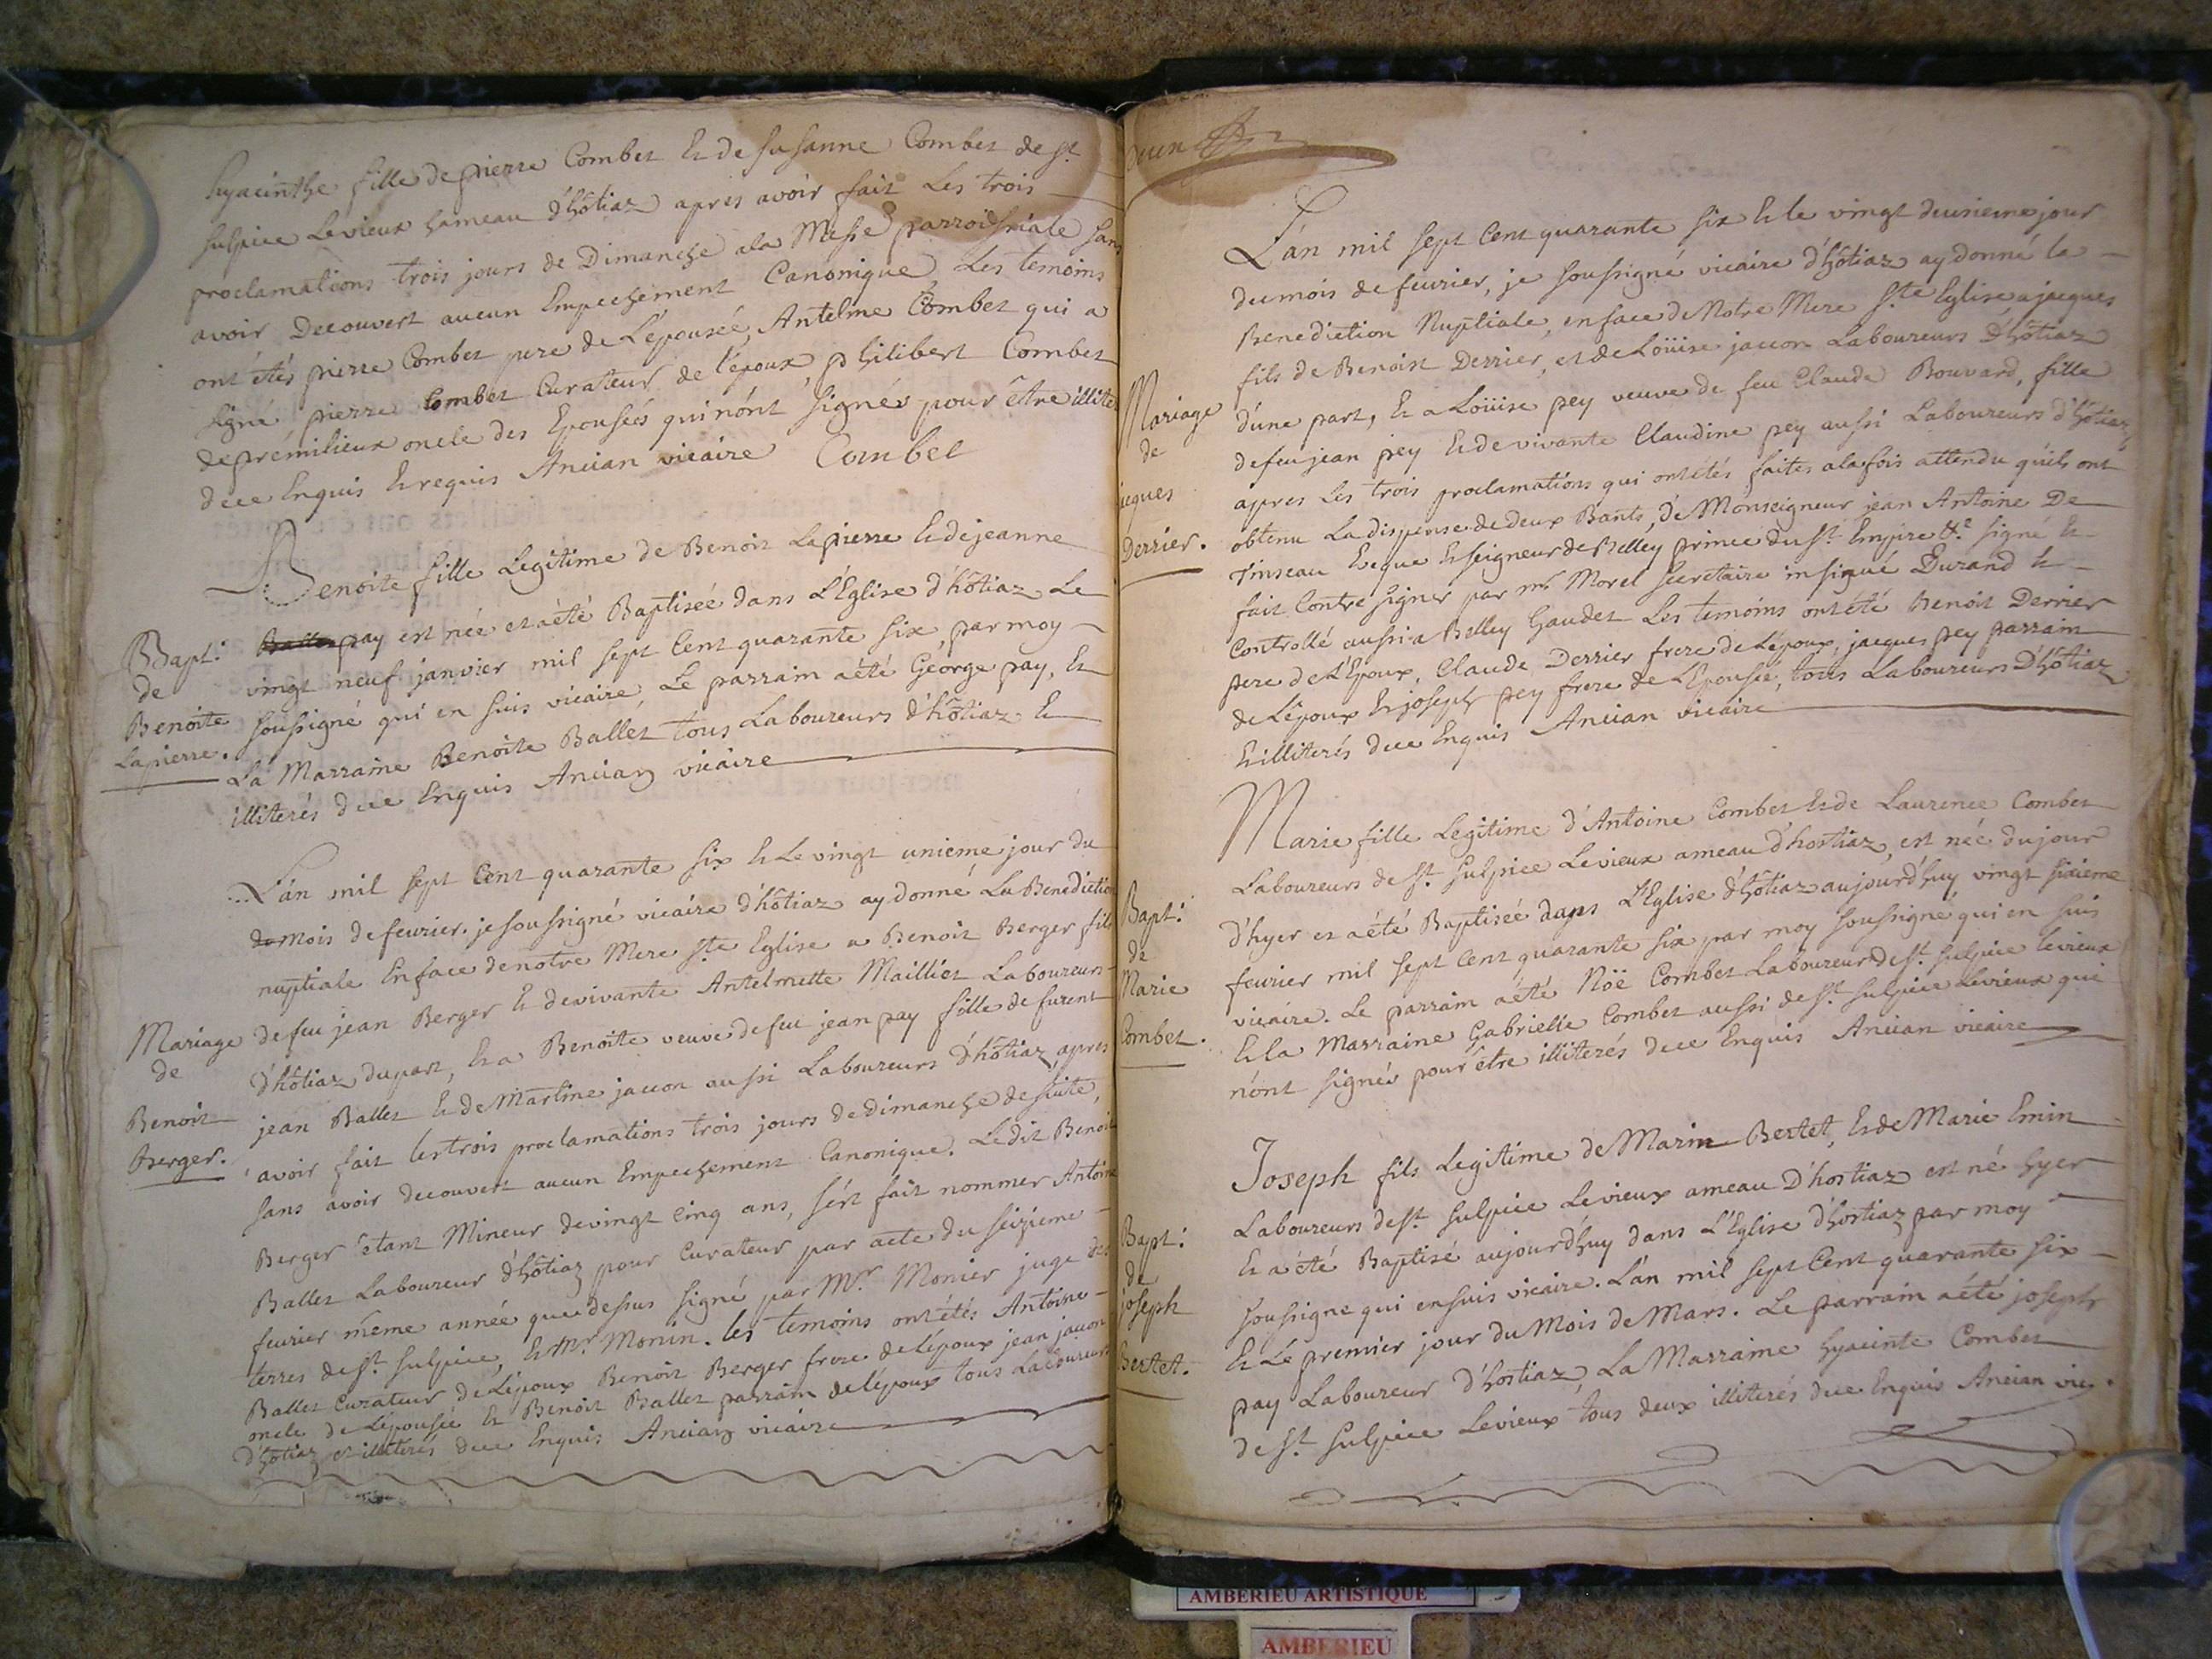 hyacinthe fille de pierre Combet Et de Susanne Combet de St
Sulpice Levieux hameau d'hôtiaz apres avoir fait Les trois
proclamations trois jours de Dimanche ala Messe parroissiale sans
avoir Decouvert aucun Empechement Canonique Les temoins
ont étés pierre Combet pere de L'epouseé, Antelme Combet qui a
signé pierre Combet Curateur de l'epoux philibert Combet
de prémilieux oncle des Epouseés qui n'ont signés pour être illite
dece Enquis Et requis Ancian vicaire Combet
Benoite fille Legitime de Benoit Lapierre Et de jeanne
pay est neé et a été Baptiseé dans L'Eglise d'hôtiaz Le
Bapt: de Benoite Lapierre.
vingt neuf janvier mil sept Cent quarante six par moy
soussigné qui en suis vicaire, Le parrain a été George pay, Et
La Marraine Benoite Ballet tous Laboureurs d'hôtiaz Et
illiterés dece Enquis Ancian vicaire
L'an mil sept Cent quarante six Et Le vingt unieme jour du
mois de feurier. je soussigné vicaire d'hôtiaz ay donné La Benediction
nuptiale En face de notre Mere Ste Eglise a Benoit Berger fils
Mariage de Benoit Berger.
de feu jean Berger Et de vivante Antelmette Mailliet Laboureurs
d'hôtiaz dupart, Et a Benoite veuve de feu jean pay fille de furent
jean Ballet Et de Martine jacon aussi Laboureurs d'hôtiaz apres
avoir fait les trois proclamations trois jours de dimanche de suite,
sans avoir decouvert aucun Empechement Canonique. Le dit Benoit
Berger etant Mineur de vingt cinq ans, s'ért fait nommer Antoine
Ballet Laboureur d'hôtiaz pour Curateur par acte du seizieme
feurier même année que dessus signé par Mr. Monier juge des
terres de St Sulpice, Et Mr. Monin. les temoins ont étés Antoine
Ballet Curateur de L'époux Benoit Berger frere de l'époux jean jacon
oncle de L'épouseé Et Benoit Ballet parrain de l'époux tous Laboureurs
d'hôtiaz et illiterés dece Enquis Ancian vicaire
L'an mil sept Cent quarante six Et le vingt deuxieme jour
du mois de feurier, je soussigné vicaire d'hôtiaz ay donné la
Benediction Nuptiale, en face de Notre Mere Ste Eglise a jacques
fils de Benoist Derrier, et de Loüise jacon Laboureurs D'hôtiaz
Mariage de jacques Derrier.
d'une part, Et a Loüise pey veuve de feu Claude Bouvard, fille
de feu jean pey Et de vivante Claudine pey aussi Laboureurs d'hôtiaz
apres les trois proclamations qui ont étés faites ala fois attendu qu'ils ont
obtenu La dispense de deux Bants, de Monseigneur jean Antoine De
Tinseau Eveque Et seigneur de Belley prince du St Empire &c signé Et
fait Contre signer par mr Morel Secretaire insinué Durand Et
Controllé aussi a Belley Gaudet Les temoins ont été Benoit Derrier
pere de L'Epoux, Claude Derrier frere de L'époux, jacques pey parrain
de L'époux Et joseph pey frere de L'Epouseé, tous Laboureurs D'hôtiaz
Et illiterés dece Enquis Ancian vicaire
Marie fille Legitime d'Antoine Combet Et de Laurence Combet
Laboureurs de St Sulpice Levieux ameau d'hostiaz, est née du jour
Bapt: de Marie Combet.
d'hyer et a été Baptiseé dans L'Eglise d'hôtiaz aujourd'huy vingt sixieme
feurier mil sept Cent quarante six par moy soussigné qui en suis
vicaire. Le parrain a été Nöe Combet Laboureur de St Sulpice levieux
Et la Marraine Gabrielle Combet aussi de St Sulpice Levieux qui
n'ont signés pour être illiterés dece Enquis Ancian vicaire
Joseph fils Legitime de Marin Bertet, Et de Marie Emin
Laboureurs de St Sulpice Levieux ameau D'hostiaz est né hyer
Bapt: de joseph Bertet.
Et a été Baptisé aujourd'huy dans L'Eglise d'hostiaz par moy
soussigne qui en suis vicaire. L'an mil sept Cent quarante six
Et Le premier jour du Mois de Mars. Le parrain a été joseph
pay Laboureur d'hostiaz, La Marraine hyacinte Combet
de St Sulpice Levieux tous deux illiterés dece Enquis Ancian vic.
AMBERIEU ARTISTIQUE
AMBERIEU